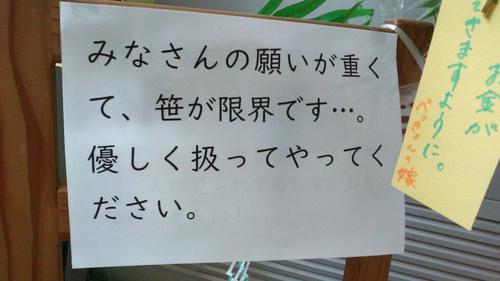 みなさんの願いが重く
て、笹が限界です…。
優しく扱ってやってく
ださい。
お金が
さますように。